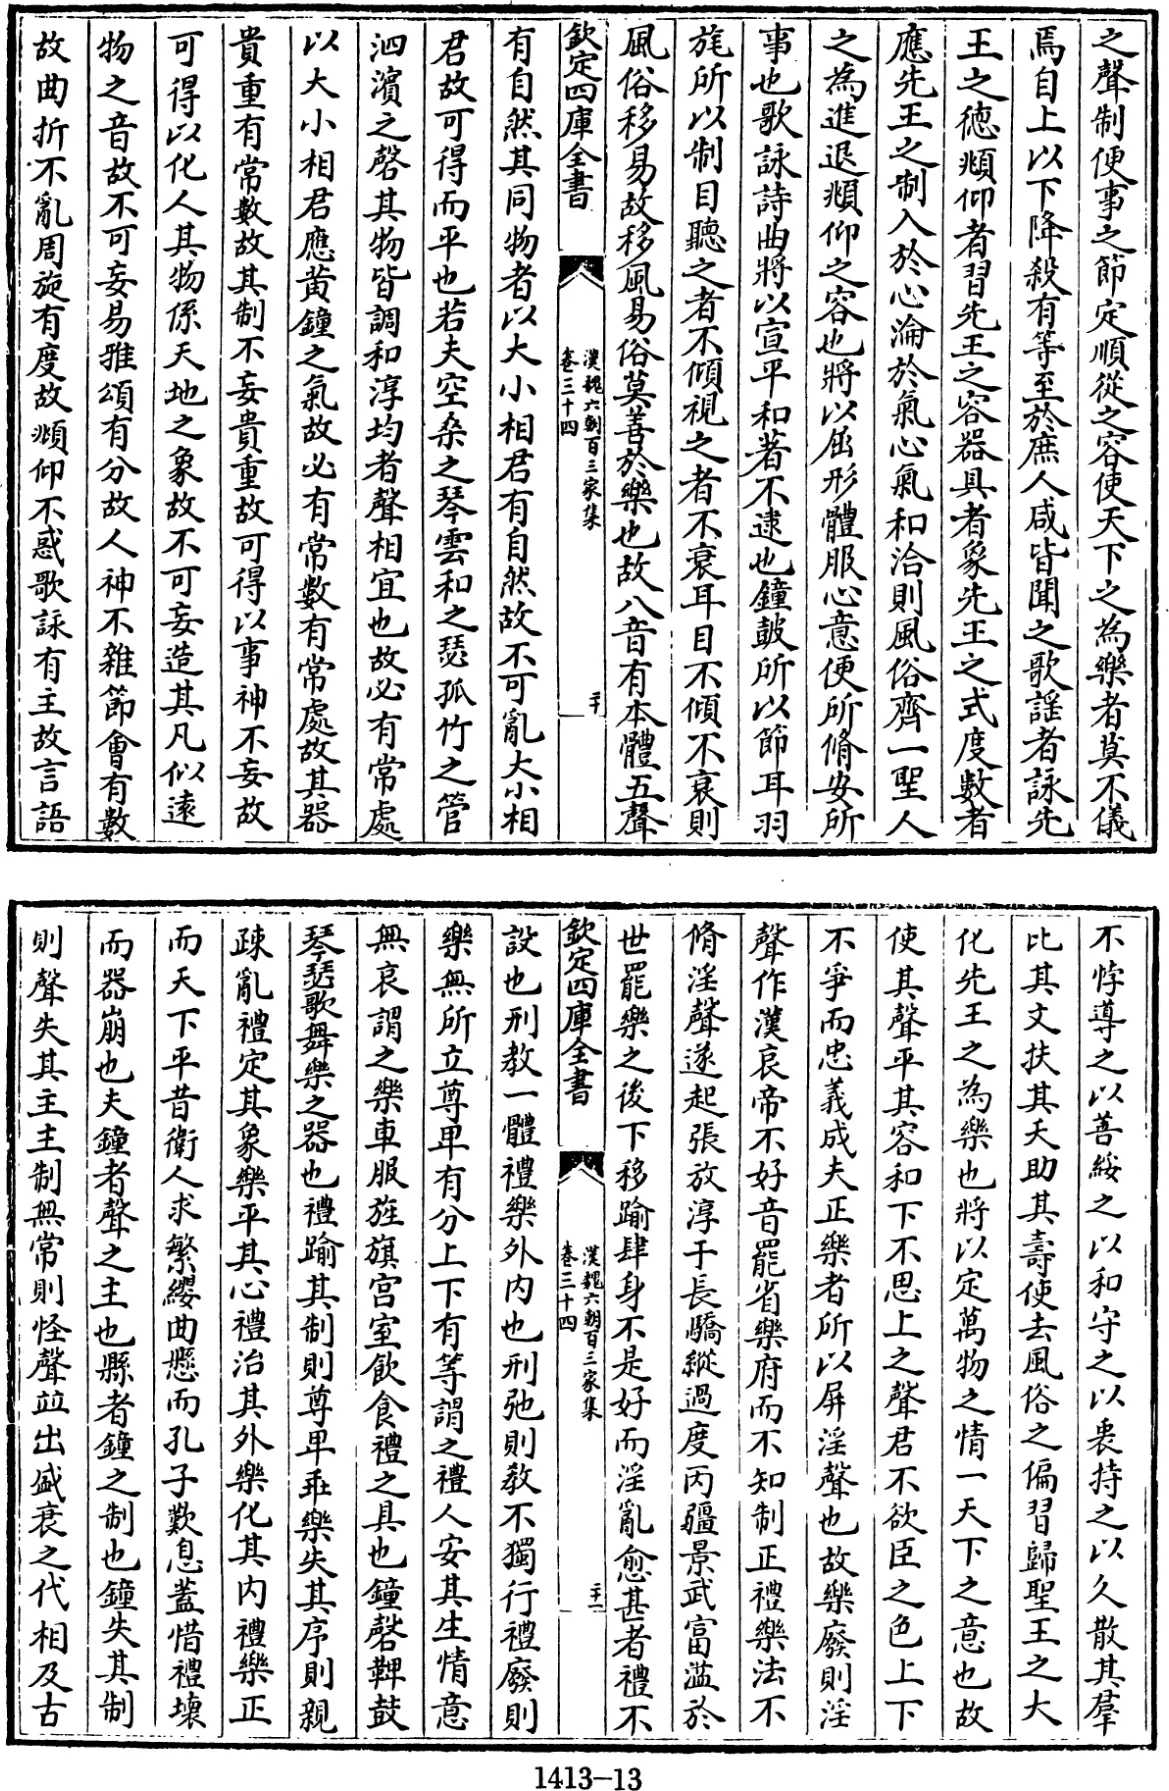 之聲制便事之節定順從之容使天下之為樂者莫不儀
焉自上以下降殺有等至於庶人咸皆聞之歌謡者詠先
王之徳頫仰者習先王之容器具者象先王之式度數者
應先王之制入於心淪於氣心氣和洽則風俗齊一聖人
之為進退頫仰之容也將以屈形體服心意便所脩安所
事也歌詠詩曲將以宣平和著不逮也鐘鼓所以節耳羽
旄所以制目聽之者不傾視之者不衰耳目不傾不衰則
風俗移易故移風易俗莫善於樂也故八音有本體五聲
欽定四庫全書
漢魏六朝百三家集
卷三十四
二十
有自然其同物者以大小相君有自然故不可亂大小相
君故可得而平也若夫空桑之琴雲和之瑟孤竹之管
泗濱之磬其物皆調和淳均者聲相宜也故必有常處
以大小相君應黄鐘之氣故必有常數有常處故其器
貴重有常數故其制不妄貴重故可得以事神不妄故
可得以化人其物係天地之象故不可妄造其凡似逺
物之音故不可妄易雅頌有分故人神不雜節會有數
故曲折不亂周旋有度故頫仰不惑歌詠有主故言語
不悖導之以善綏之以和守之以衷持之以久散其羣
比其文扶其夭助其夀使去風俗之偏習歸聖王之大
化先王之為樂也將以定萬物之情一天下之意也故
使其聲平其容和下不思上之聲君不欲臣之色上下
不爭而忠義成夫正樂者所以屏淫聲也故樂廢則淫
聲作漢哀帝不好音罷省樂府而不知制正禮樂法不
脩淫聲遂起張放淳于長驕縱過度丙疆景武富溢於
世罷樂之後下移踰肆身不是好而淫亂愈甚者禮不
欽定四庫全書
漢魏六朝百三家集
卷三十四
二十一
設也刑教一體禮樂外内也刑弛則教不獨行禮廢則
樂無所立尊卑有分上下有等謂之禮人安其生情意
無哀謂之樂車服旌旗宫室飲食禮之具也鐘磬鞞鼓
琴瑟歌舞樂之器也禮踰其制則尊卑乖樂失其序則親
疎亂禮定其象樂平其心禮治其外樂化其内禮樂正
而天下平昔衛人求繁纓曲懸而孔子歎息盖惜禮壊
而器崩也夫鐘者聲之主也縣者鐘之制也鐘失其制
則聲失其主主制無常則怪聲並出盛衰之代相及古
1413-13